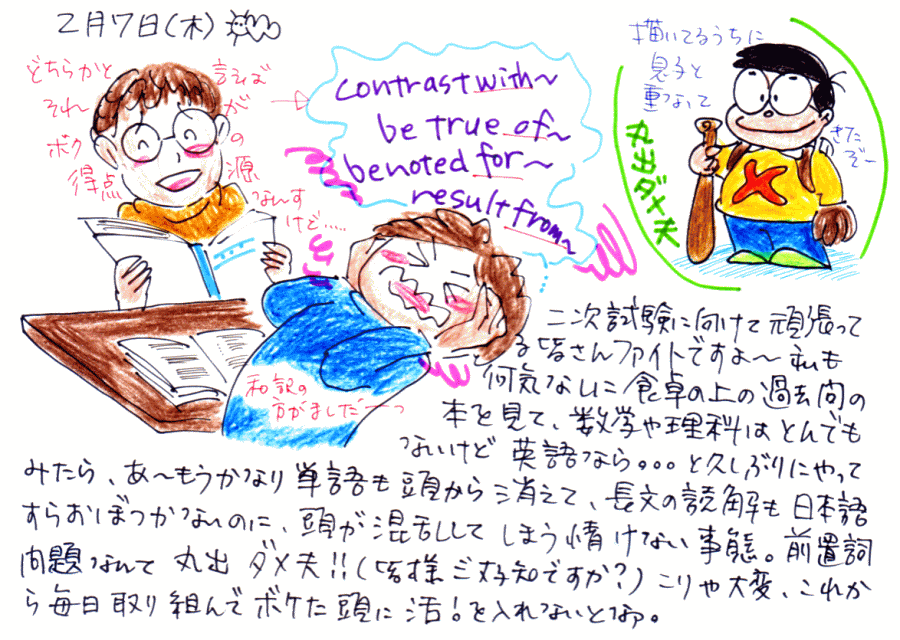 2月7日(木)
どちらかと言えば
それがボクの
得点源
なんす
けど.....
contrast with~
be true of~
be noted for~
result from~
描いてるうちに
息子と
重なって
きた
ぞー
丸出ダメ夫
和訳の
方がましだーっ
二次試験に向けて頑張って
る皆さんファイトですよ~私も
何気なしに食卓の上の過去問の
本を見て、数学や理科はとんでも
ないけど英語なら。。。と久しぶりにやって
みたら、あ~もうかなり単語も頭から消えて、長文の読解も日本語
すらおぼつかないのに、頭が混乱してしまう情けない事態。前置詞
問題なんて丸出ダメ夫!!(皆様ご存知ですか?)こりゃ大変、これか
ら毎日取り組んでボケた頭に活!を入れないとなぁ。